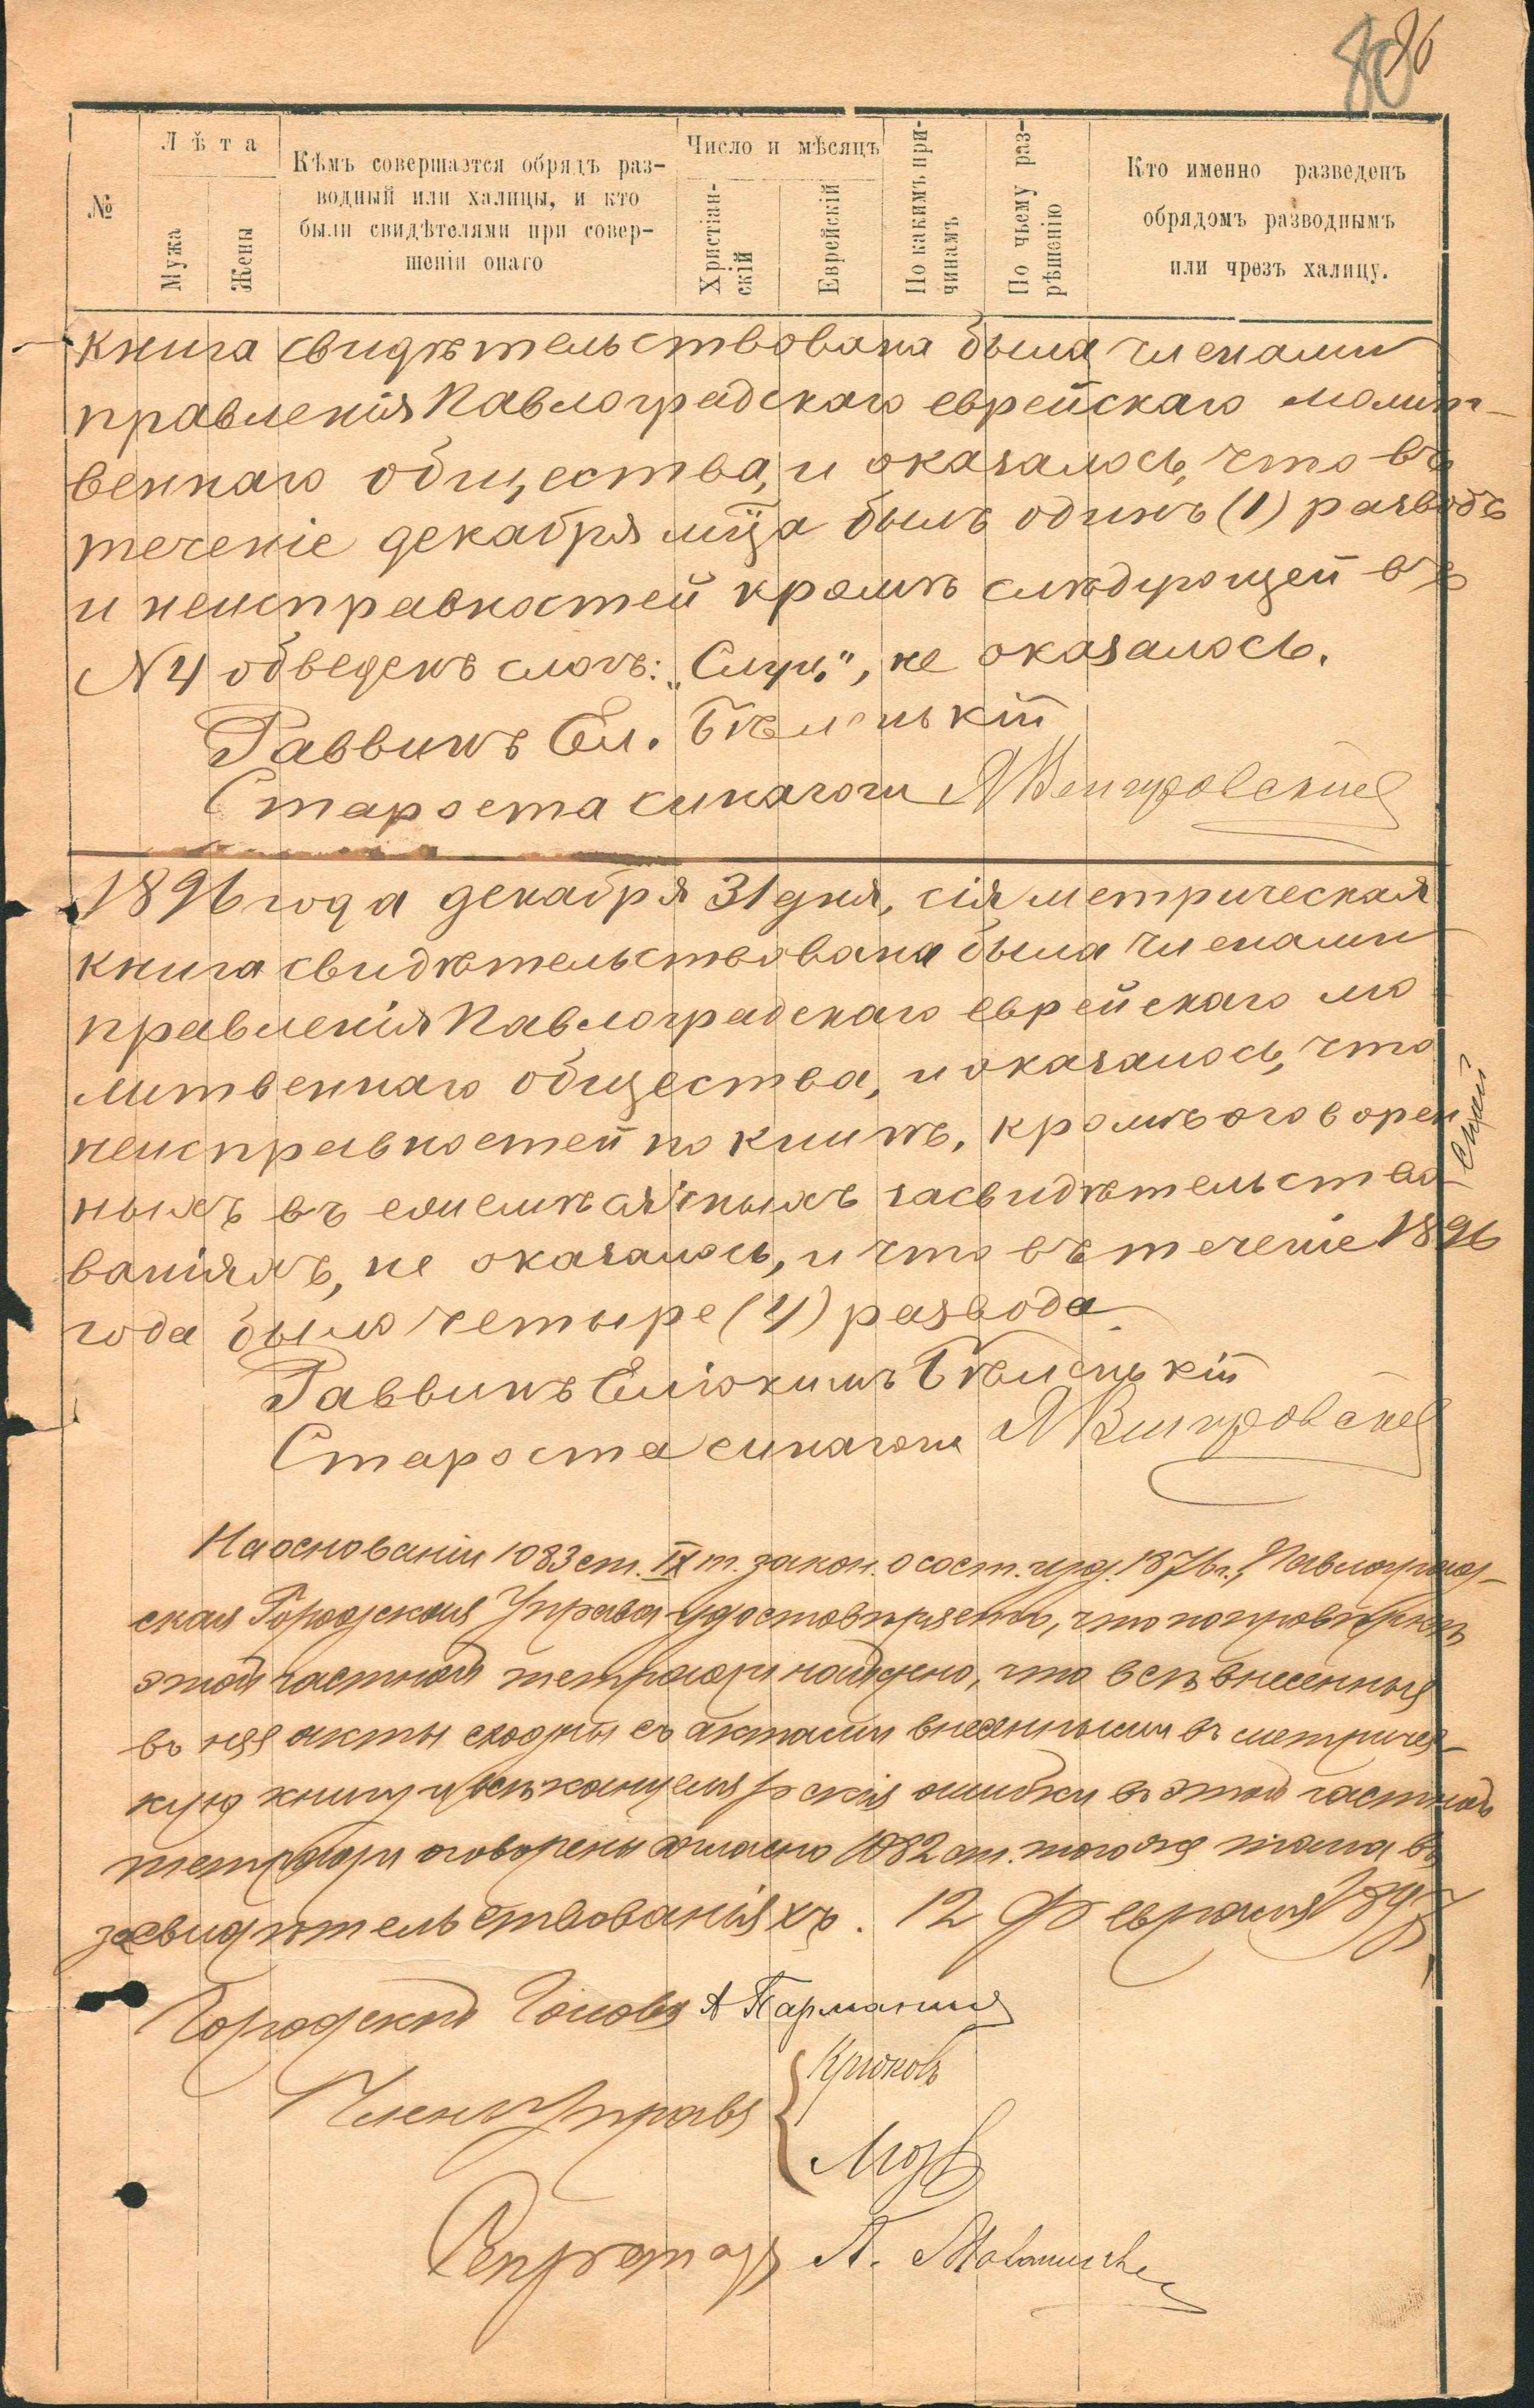 96
№
Лѣта
Мужа
Жены
Кѣмъ совершается обрядъ раз-
водный или халицы, и кто
были свидѣтелями при совер-
шеніи онаго
Число и мѣсяцъ
Христіан-
скій
Еврейскій
По какимъ при-
чинамъ
По чьему раз-
рѣшенію
Кто именно разведенъ
обрядомъ разводнымъ
или чрезъ халицу.
книга свидѣтельствована была членами
правленія Павлоградскаго еврейскаго молит-
веннаго общества, и оказалось, что въ
теченіе декабря мѣца былъ одинъ (1) разводъ
и неисправностей кромѣ слѣдующей въ
N 4 обведенъ слогъ: не оказалось.
Раввинъ Ел. Бѣленькій
Староста синагоги
1896 года декабря 31 дня, сія метрическая
книга свидѣтельствована была членами
правленія Павлоградскаго еврейскаго мо
литвеннаго общества, и оказалось, что
неисправностей по книгѣ, кромѣ оговорен
ныхъ въ ежемѣсячныхъ засвидѣтельство
ваніяхъ, не оказалось, и что въ теченіе 1896
года было четыре (4) развода.
Раввинъ Еліокимъ Бѣленькій
Староста синагоги
На основаніи 1083 ст. IX т. закон. о сост. изд. 1876 г., Павлоград-
ская Городская Управа удостовѣряетъ, что по провѣркѣ
этой частной тетради найдено, что всѣ внесенныя
въ нея акты сходны съ актами внесенными въ метричес-
кую книгу и всѣ канцелярскія ошибки въ этой частной
тетради оговорены согласно 1082 ст. того же тома въ
засвидѣтельствованіяхъ. 12 Февраля 1897
Городской Голова А
Члены Управы
Крюковъ
Секретарь